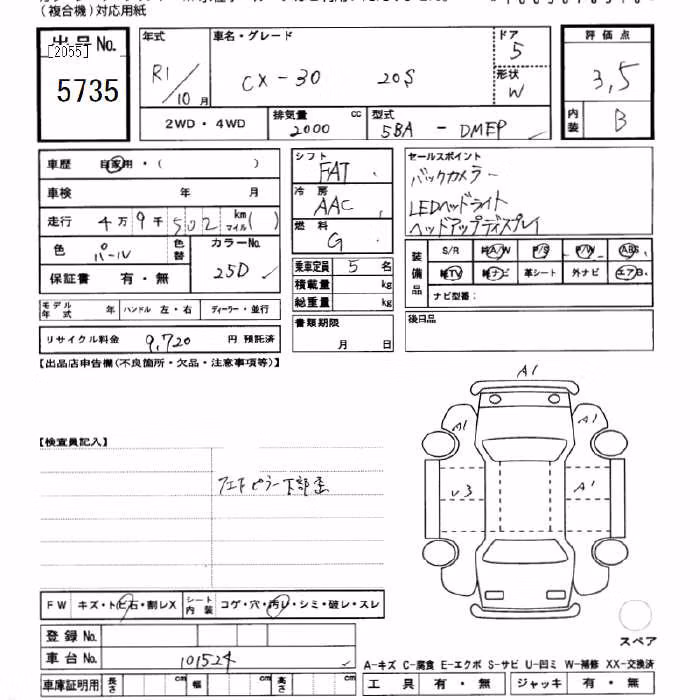 (複合機)対応用紙
出品No.
[2055]
5735
年式 R1/10月
車名・グレード CX-30 20S
ドア 5
形状 W
評価点 3,5
内装 B
2WD・4WD
排気量 2000 cc
型式 5BA - DMEP
車歴 自家用・( )
車検 年 月
走行 4万9千502 km マイル( )
色 パール
色替
カラーNo. 25D
保証書 有・無
シフト FAT
冷房 AAC
燃料 G
乗車定員 5名
積載量 kg
総重量 kg
書類期限
月 日
セールスポイント
バックカメラー
LEDヘッドライト
ヘッドアップディスプレイ
装備品
S/R 純A/W P/S P/W ABS
純TV 純ナビ 革シート 外ナビ エアB
ナビ型番:
後日品
モデル年式 年 ハンドル 左・右 ディーラー・並行
リサイクル料金 9,720 円 預託済
【出品店申告欄(不良箇所・欠品・注意事項等)】
【検査員記入】
A1
A1
A1
U3
A1
FW キズ・トビ石・割レX シート内装 コゲ・穴・汚レ・シミ・破レ・スレ
登録No.
車台No. 101524
車庫証明用 長さ cm 幅 cm 高さ cm
スペア
A-キズ C-腐食 E-エクボ S-サビ U-凹ミ W-補修 XX-交換済
工具 有・無 ジャッキ 有・無